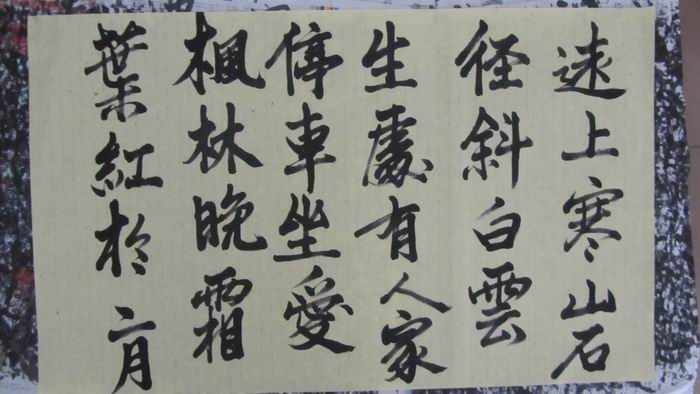 遠上寒山石
径斜白雲
生處有人家
停車坐愛
楓林晚霜
葉紅於二月